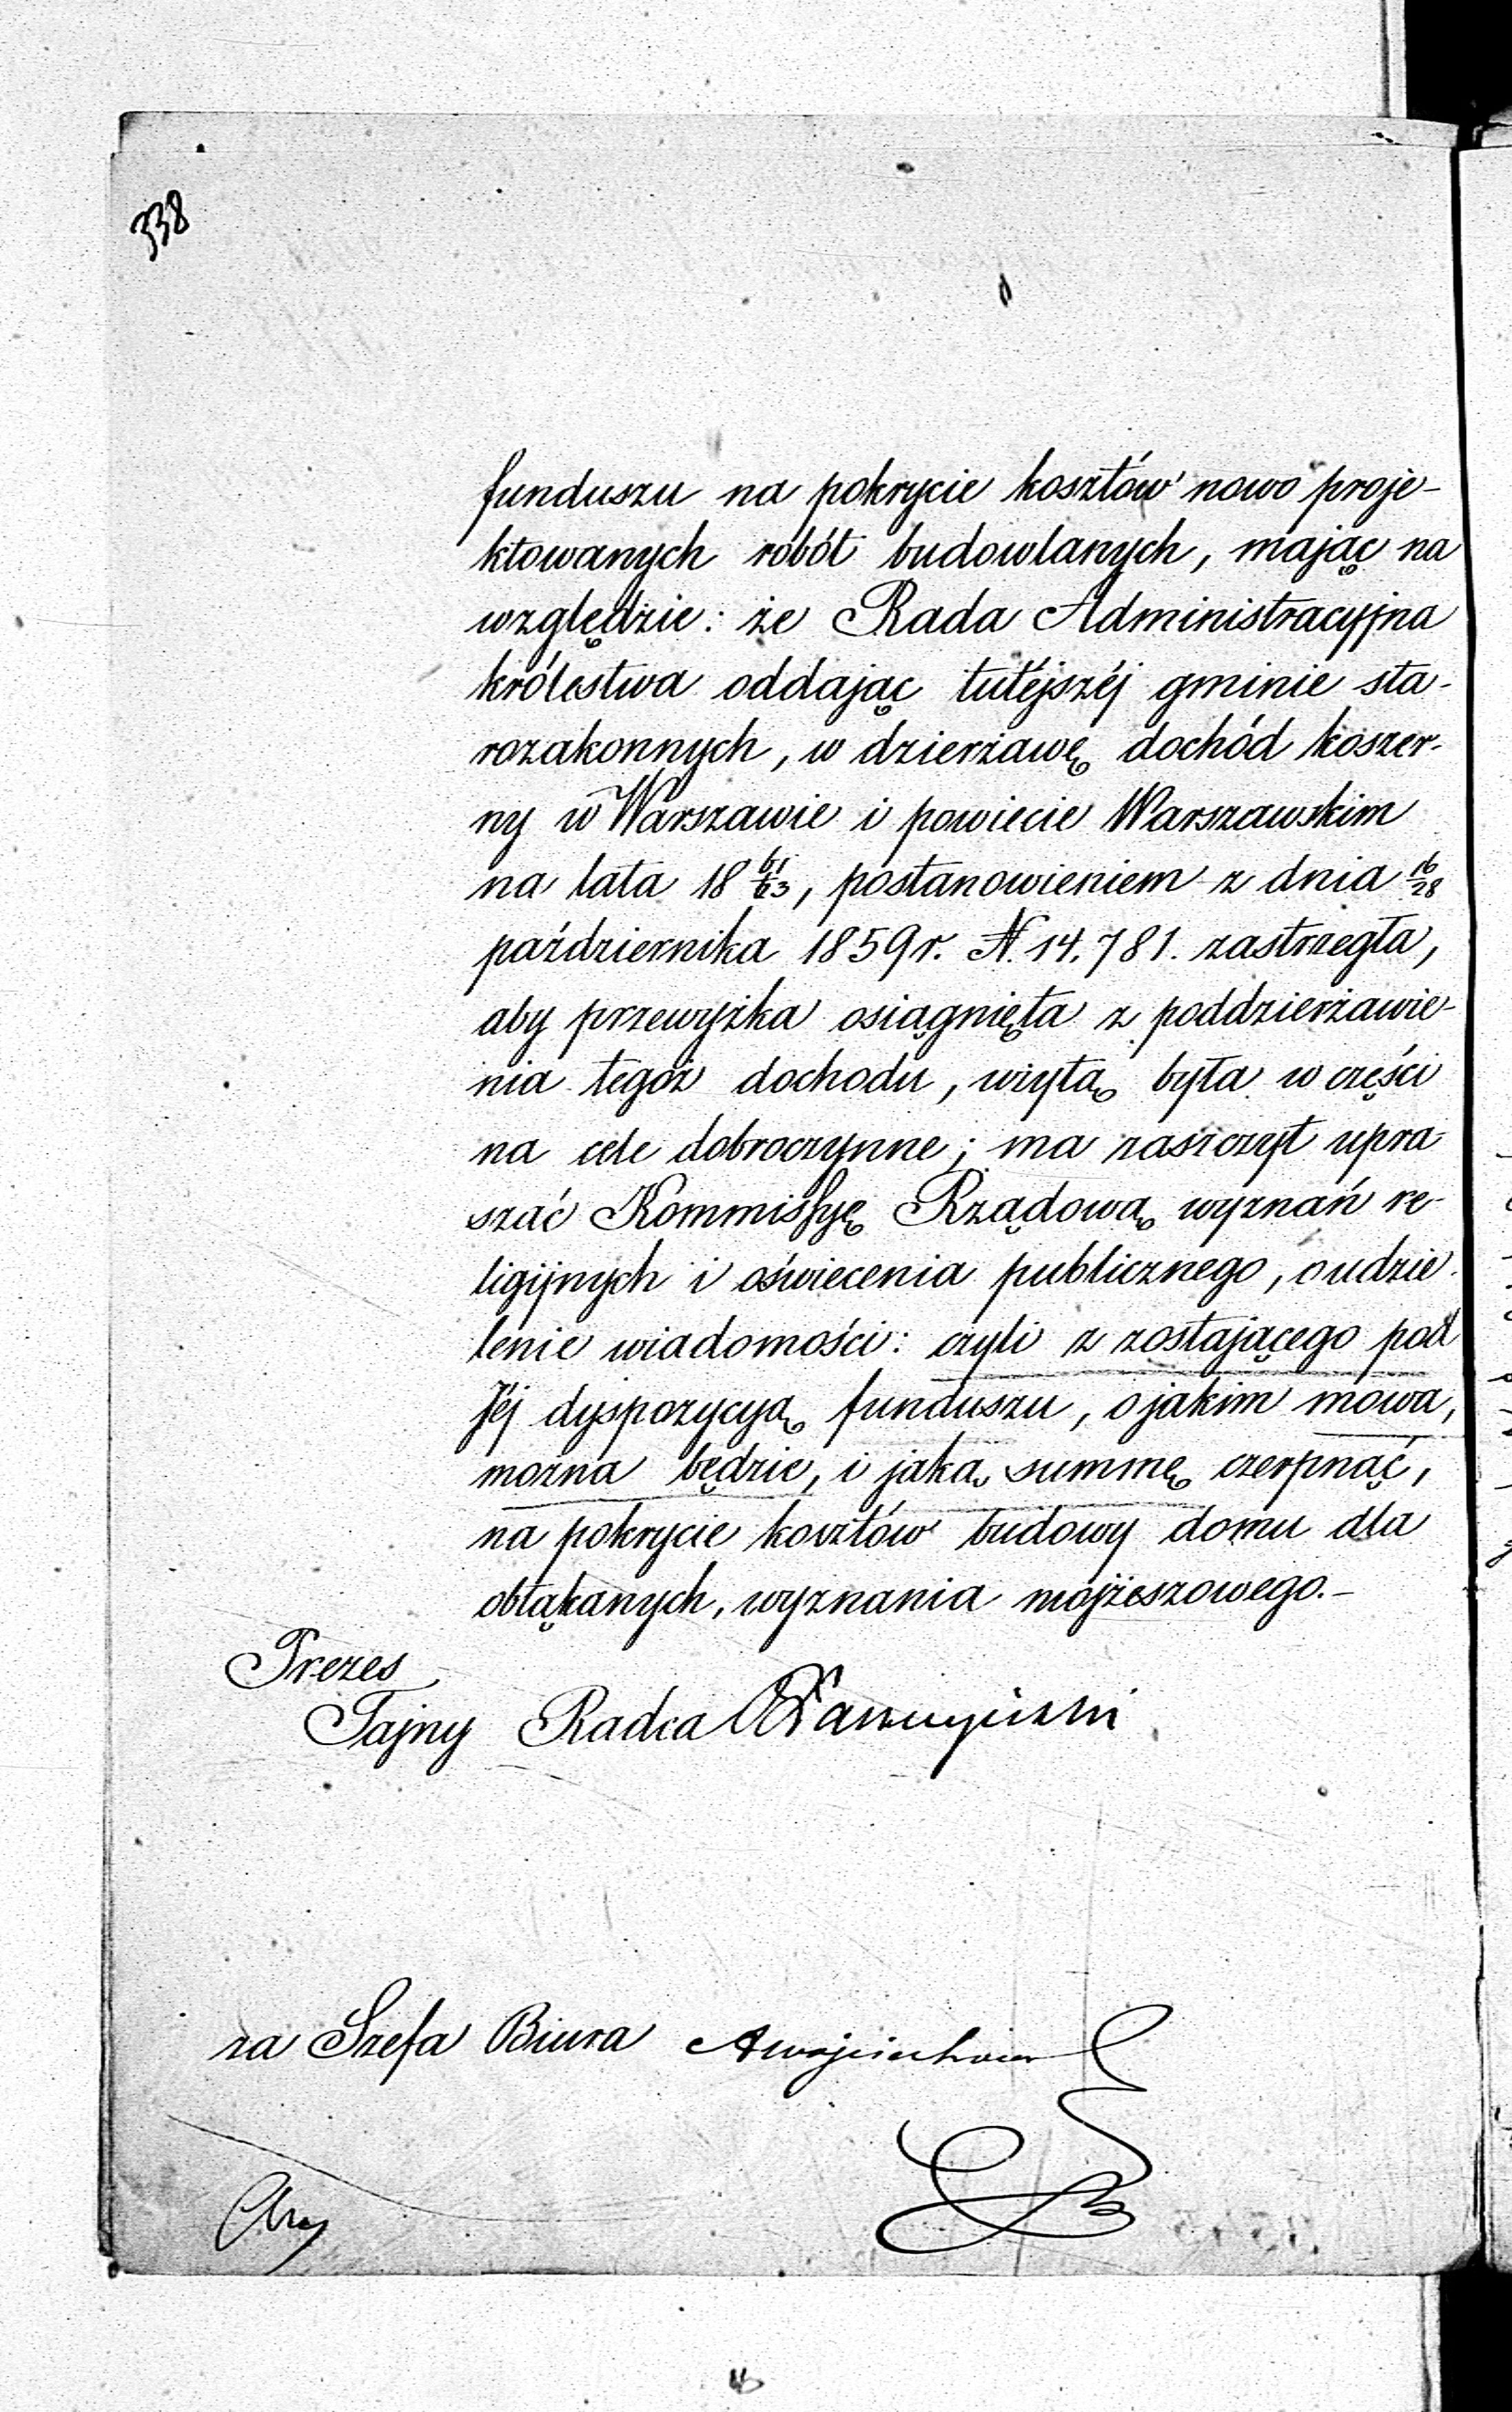 338
funduszu na pokrycie kosztów nowo proje-
ktowanych robót budowlanych, mając na
względzie: że Rada Administracyjna
królestwa oddając tutéjszéj gminie sta-
rozakonnych, w dzierżawę dochód koszer-
ny w Warszawie i powiecie Warszawskim
na lata 18 61/63, postanowieniem z dnia 16/28
października 1859 r. N. 14.781. zastrzegła,
aby przewyżka osiągnięta z poddzierżawie-
nia tegoż dochodu, użytą była w części
na cele dobroczynne; ma zaszczyt upra-
szać Kommissyę Rządową wyznań re-
ligijnych i oświecenia publicznego, o udzie-
lenie wiadomości: czyli z zostającego pod
Jéj dyspozycyą funduszu, o jakim mowa,
można będzie, i jaką summę czerpnąć,
na pokrycie kosztów budowy domu dla
obłąkanych, wyznania mojżeszowego.-
Prezes
Tajny Radca
za Szefa Biura